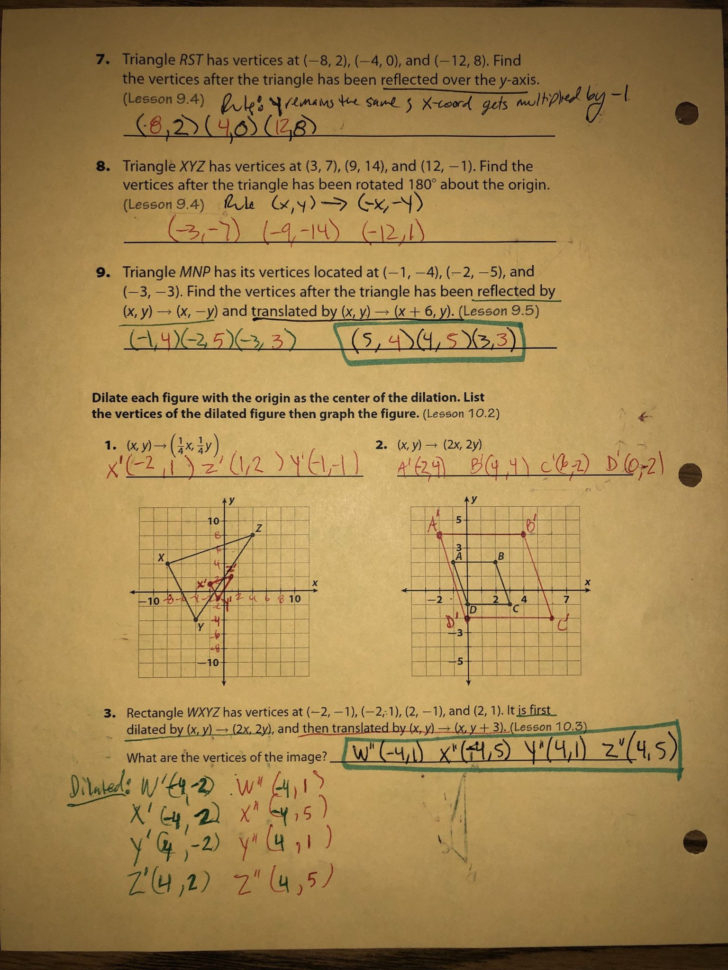 7. Triangle RST has vertices at (−8, 2), (−4, 0), and (−12, 8). Find
the vertices after the triangle has been reflected over the y-axis.
(Lesson 9.4) Rule: y remains the same & x-coord gets multiplied by -1
(8,2)(4,0)(12,8)
8. Triangle XYZ has vertices at (3, 7), (9, 14), and (12, −1). Find the
vertices after the triangle has been rotated 180° about the origin.
(Lesson 9.4) Rule (x,y)→(-x,-y)
(-3,-7) (-9,-14) (-12,1)
9. Triangle MNP has its vertices located at (−1, −4), (−2, −5), and
(−3, −3). Find the vertices after the triangle has been reflected by
(x, y) → (x, −y) and translated by (x, y) → (x + 6, y). (Lesson 9.5)
(-1,4)(-2,5)(-3,3) (5,4)(4,5)(3,3)
Dilate each figure with the origin as the center of the dilation. List
the vertices of the dilated figure then graph the figure. (Lesson 10.2)
1. (x, y) → (1/4x, 1/4y) 2. (x, y) → (2x, 2y)
X'(-2,1) Z'(1,2) Y'(-1,-1) A'(-2,4) B'(4,4) C'(6,-2) D'(0,-2)
y y
10 8 Z A' 5 B'
6
X 4 3
A B
X' Z' x x
−10 -8 -6 -4 2 4 6 8 10 −2 2 4 7
Y' D C
Y -4 D' C'
-6 −3
-8
−10 −5
3. Rectangle WXYZ has vertices at (−2, −1), (−2, 1), (2, −1), and (2, 1). It is first
dilated by (x, y) → (2x, 2y), and then translated by (x, y) → (x, y + 3). (Lesson 10.3)
What are the vertices of the image? W"(-4,1) X"(-4,5) Y"(4,1) Z"(4,5)
Dilated: W'(-4,-2) W"(-4,1)
X'(-4,2) X"(-4,5)
Y'(4,-2) Y"(4,1)
Z'(4,2) Z"(4,5)